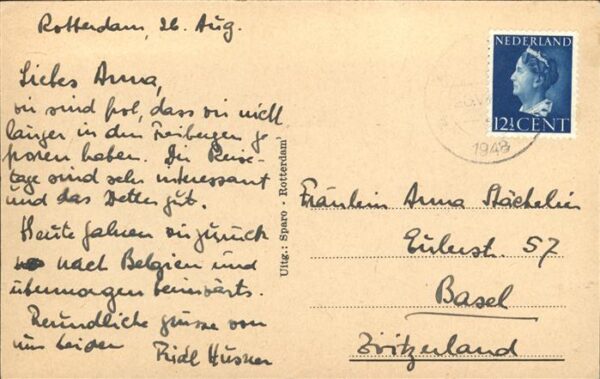 Rotterdam, 26. Aug.
Liebes Anna,
wir sind froh, dass wir nicht
länger in den Freibergen ge-
froren haben. Die Reise-
tage sind sehr interessant
und das Wetter gut.
Heute fahren wir zurück
nach Belgien und
übermorgen heimwärts.
Freundliche Grüsse von
uns beiden
Uitg.: Sparo - Rotterdam
NEDERLAND
12½ CENT
1948
Fräulein Anna Stächelin
Eulerstr. 57
Basel
Zwitzerland